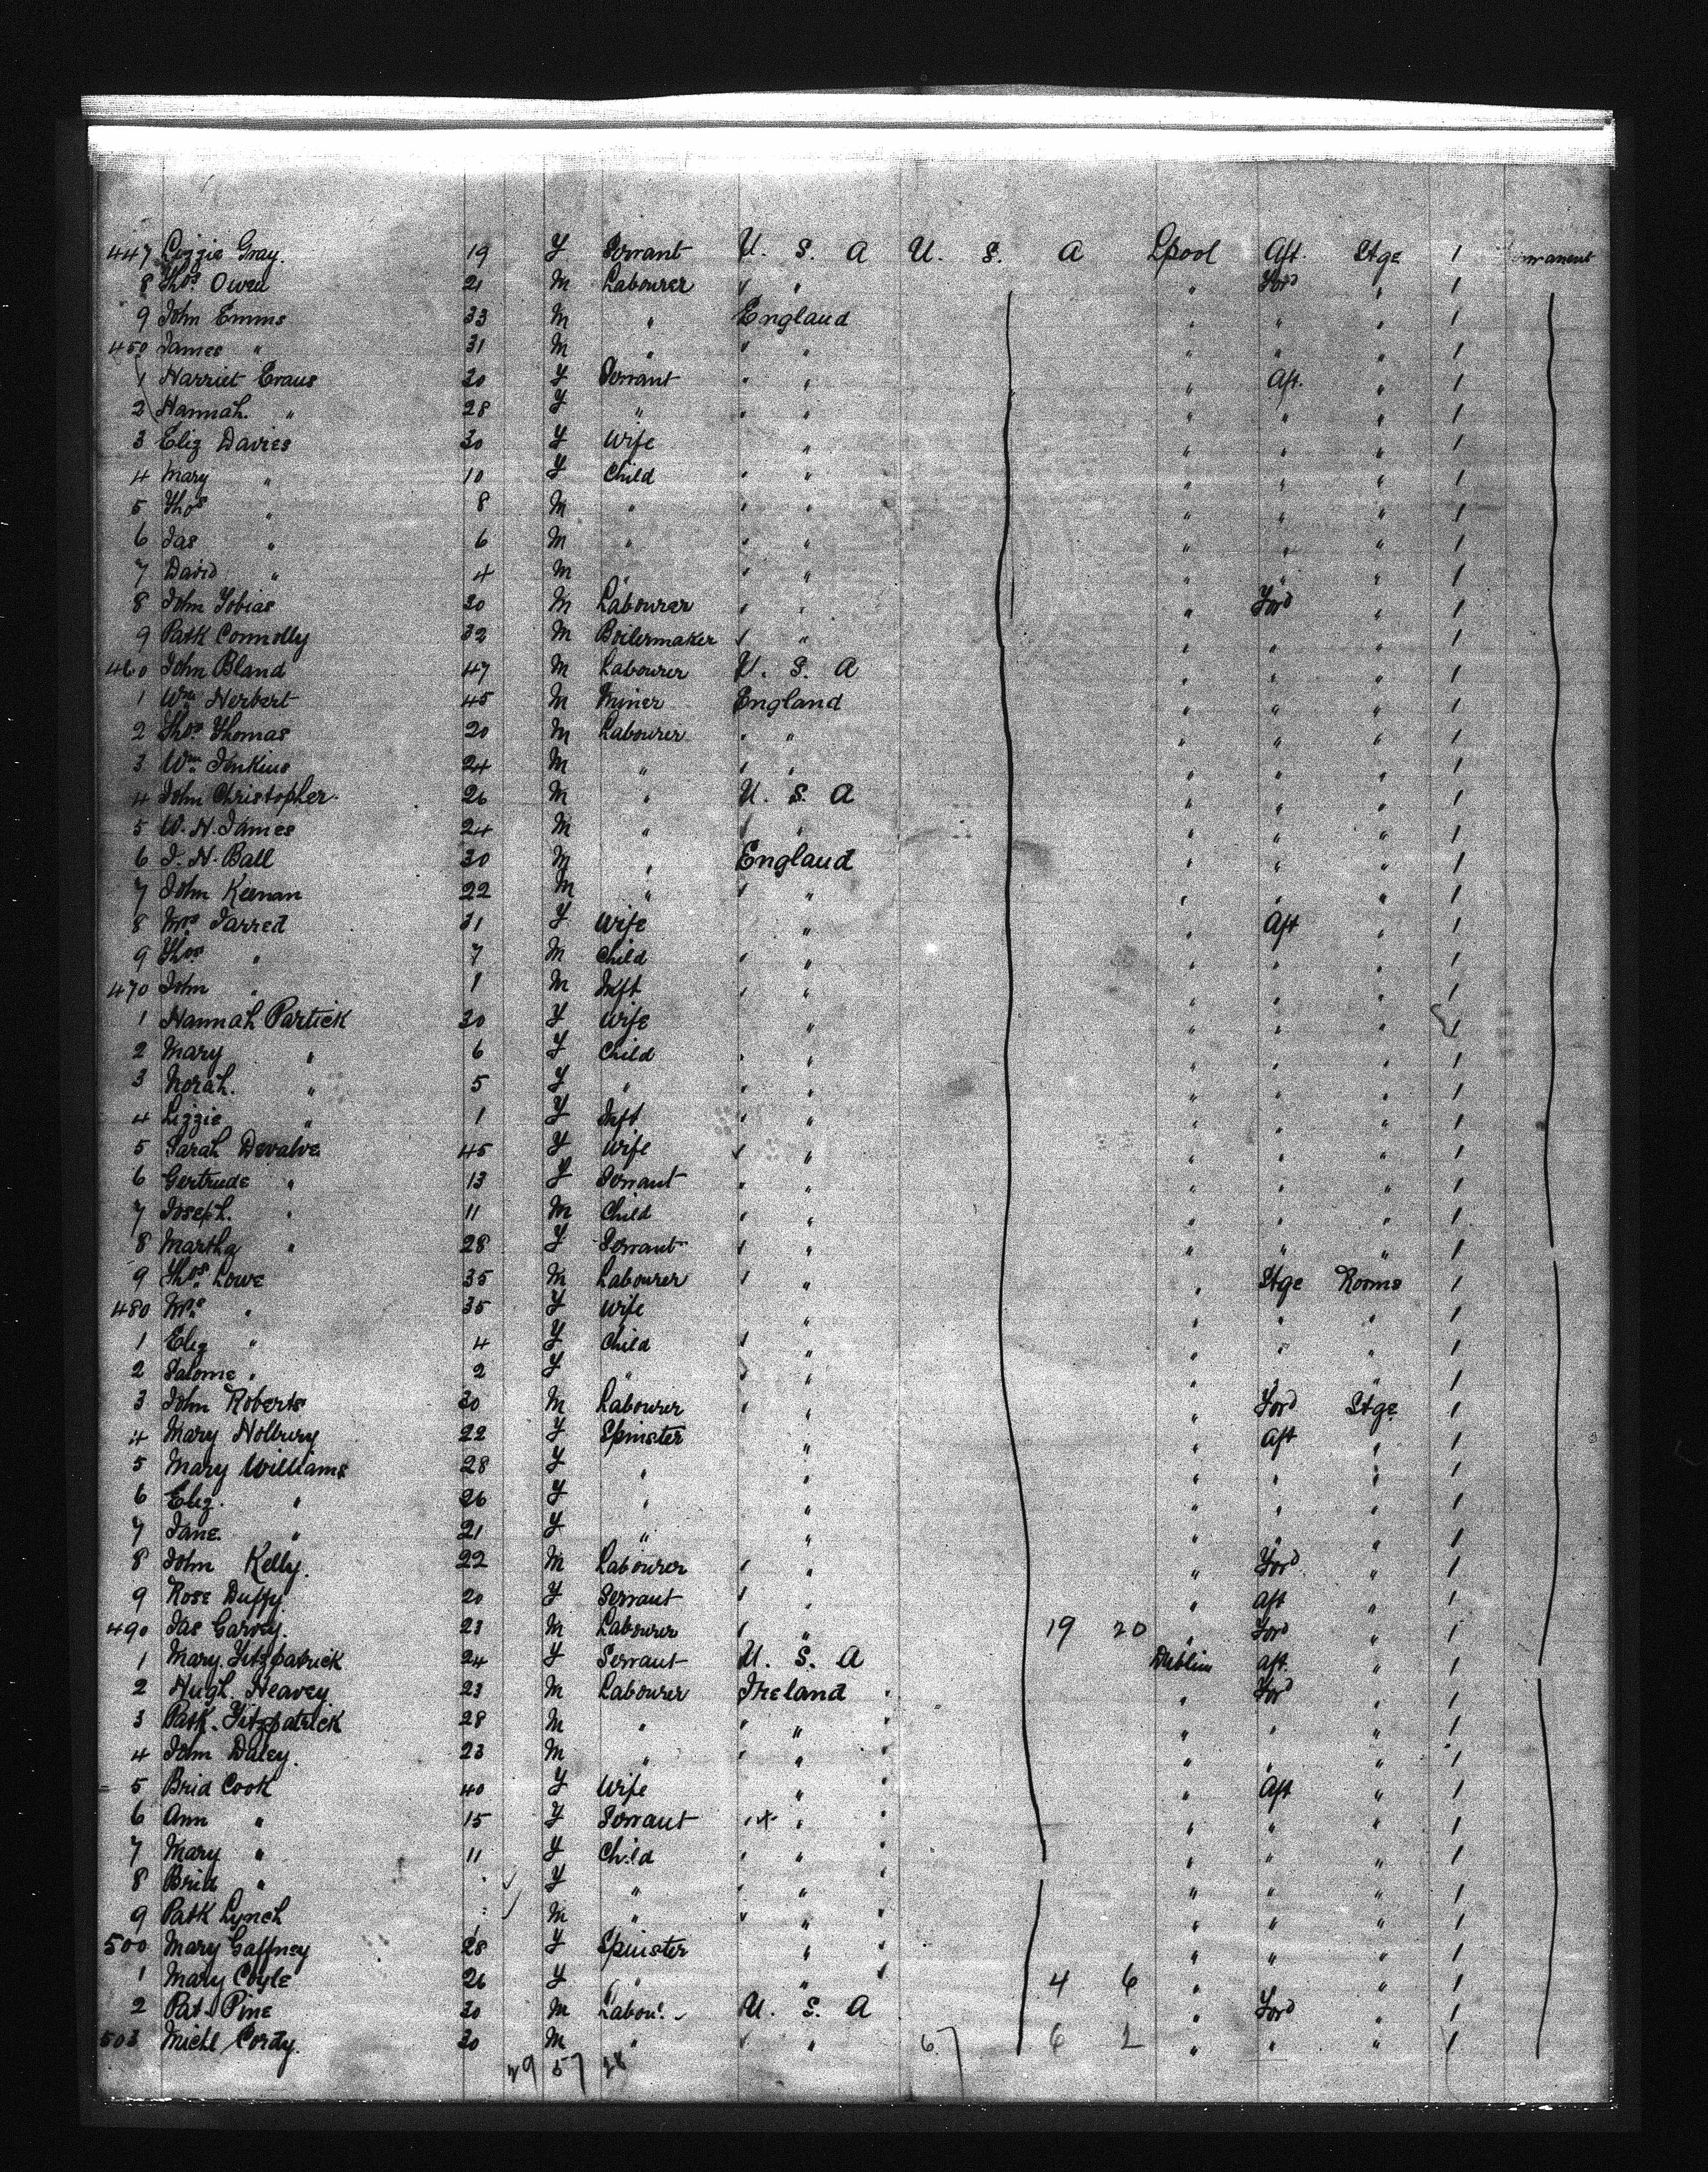 447 Lizzie Gray. 19 F Servant U. S. A U. S. A Lpool Aft. Stge 1
8 Thos Owen 21 M Labourer " " " Ford " 1
9 John Emms 33 M " England " " " 1
450 James " 31 M " " " " " " 1
1 Harriet Evans 30 F Servant " " " Aft. " 1
2 Hannah. " 28 F " " " " " " 1
3 Eliz Davies 30 F Wife " " " " 1
4 Mary " 10 F Child " " " " " 1
5 Thos " 8 M " " " " " " 1
6 Jas " 6 M " " " " " " 1
7 David " 4 M " " " " " " 1
8 John Tobias 30 M Labourer " " " Ford " 1
9 Patk Connolly 32 M Boilermaker " " " " " 1
460 John Bland 47 M Labourer U. S. A " " " 1
1 Wm Herbert 45 M Miner England " " " 1
2 Thos Thomas 20 M Labourer " " " " " 1
3 Wm Jenkins 24 M " " " " " " 1
4 John Christopher 26 M " U. S. A " " " 1
5 W. H. James 24 M " " " " " " 1
6 J. H. Ball 30 M " England " " " 1
7 John Keenan 22 M " " " " " " 1
8 Mrs Jarred 31 F Wife " " Aft " 1
9 Thos " 7 M Child " " " " " 1
470 John " 1 M Inft " " " " " 1
1 Hannah Partick 30 F Wife " " " " 1
2 Mary " 6 F Child " " " " " 1
3 Norah. " 5 F " " " " " " 1
4 Lizzie " 1 F Inft " " " " " 1
5 Sarah Devalve 45 F Wife " " " " " 1
6 Gertrude " 13 F Servant " " " " " 1
7 Joseph. " 11 M Child " " " " " 1
8 Martha " 28 F Servant " " " " " 1
9 Thos Lowe 35 M Labourer " " " Stge Rooms 1
480 Mrs " 35 F Wife " " " " 1
1 Eliz " 4 F Child " " " " " 1
2 Salome " 2 F " " " " " " 1
3 John Roberts 30 M Labourer " " " Ford Stge 1
4 Mary Holbury 22 F Spinster " " Aft " 1
5 Mary Williams 28 F " " " " " 1
6 Eliz. " 26 F " " " " " 1
7 Jane. " 21 F " " " " " 1
8 John Kelly. 22 M Labourer " " " Ford " 1
9 Rose Duffy 20 F Servant " " " Aft " 1
490 Jas Garvey. 23 M Labourer " " 19 20 " Ford " 1
1 Mary Fitzpatrick 24 F Servant U. S. A Dublin Aft. " 1
2 Hugh Heavey 23 M Labourer Ireland " Ford " 1
3 Patk. Fitzpatrick 28 M " " " " " " 1
4 John Daley. 23 M " " " " " " 1
5 Brid Cook 40 F Wife " " Aft " 1
6 Ann " 15 F Servant " " " " " 1
7 Mary " 11 F Child " " " " " 1
8 Brid " F " " " " " " 1
9 Patk Lynch M " " " " " " 1
500 Mary Gaffney 28 F Spinster " " " " 1
1 Mary Coyle 26 F " " 4 6 " " " 1
2 Pat Pine 30 M Labour. U. S. A " Ford " 1
503 Michl Cordy. 30 M " " " 67 6 2 " " " 1
29 57 28